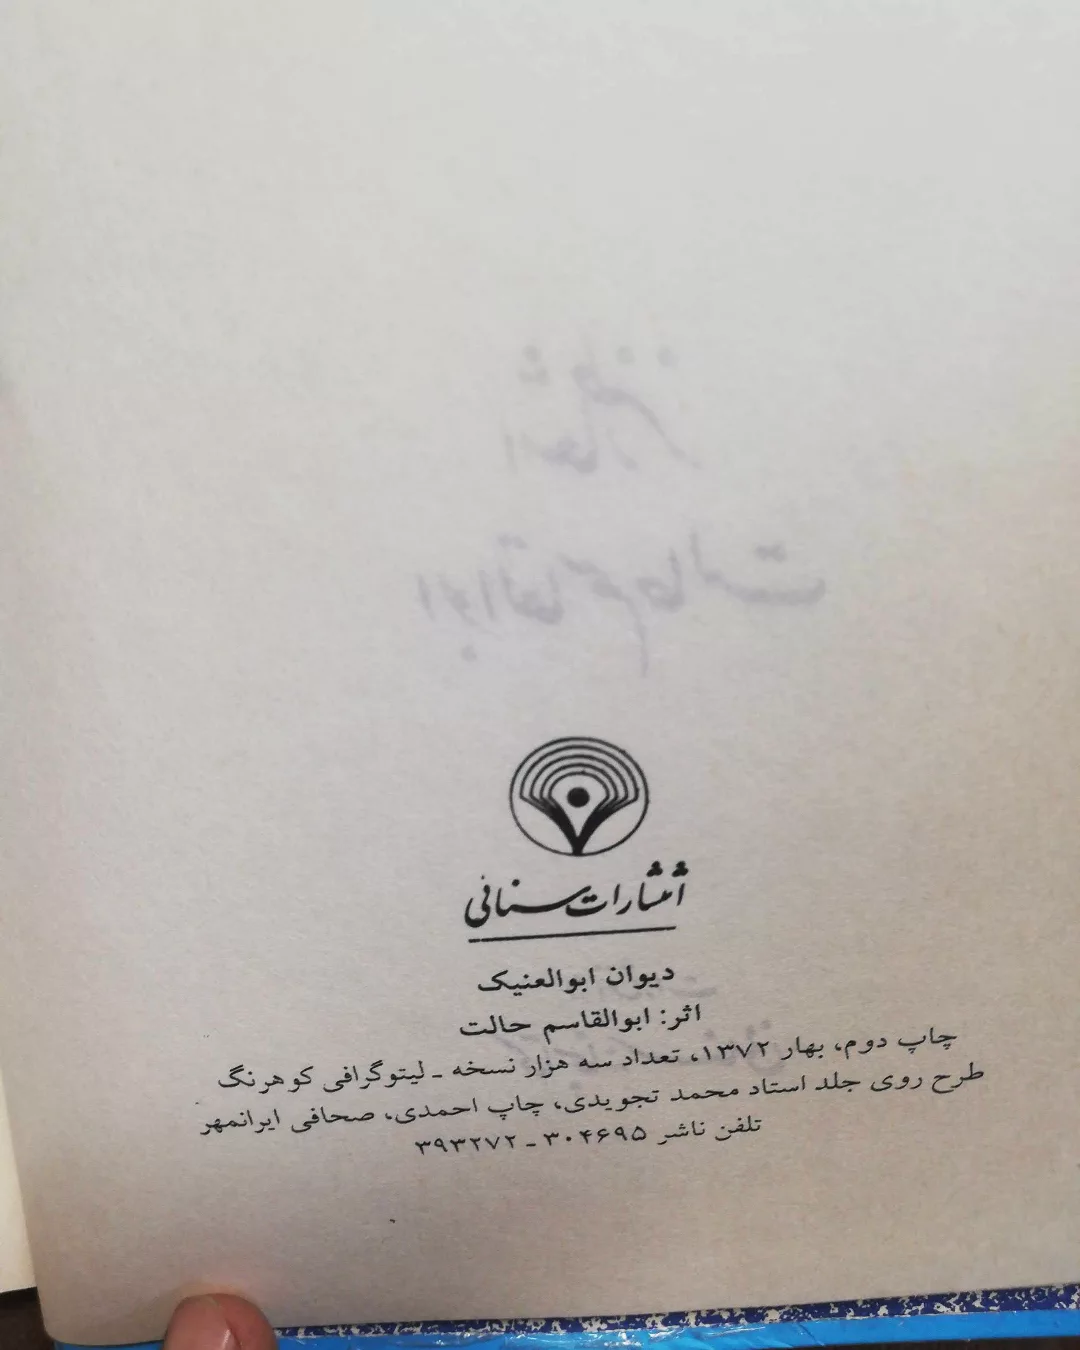 انتشارات سنائی
دیوان ابوالعنیک
اثر: ابوالقاسم حالت
چاپ دوم، بهار ۱۳۷۲، تعداد سه هزار نسخه ـ لیتوگرافی کوهرنگ
طرح روی جلد استاد محمد تجویدی، چاپ احمدی، صحافی ایرانمهر
تلفن ناشر ۳۰۴۶۹۵ ـ ۳۹۳۲۷۲